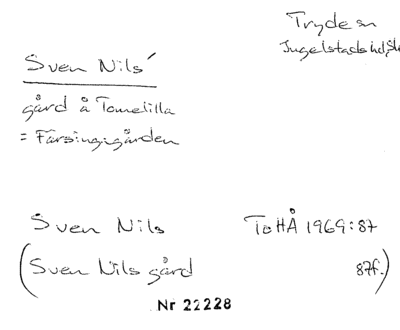 Tryde sn
Ingelstads hd, Sk
Sven Nils'
gård å Tomelilla
= Färsingagården
Sven Nils ToHÅ 1969:87
(Sven Nils gård 87f.)
Nr 22228